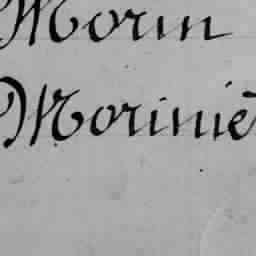 Morin
Morinie